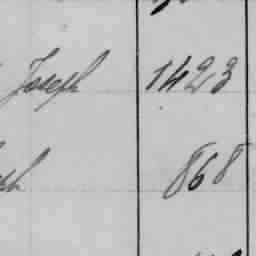 Joseph 1423
868